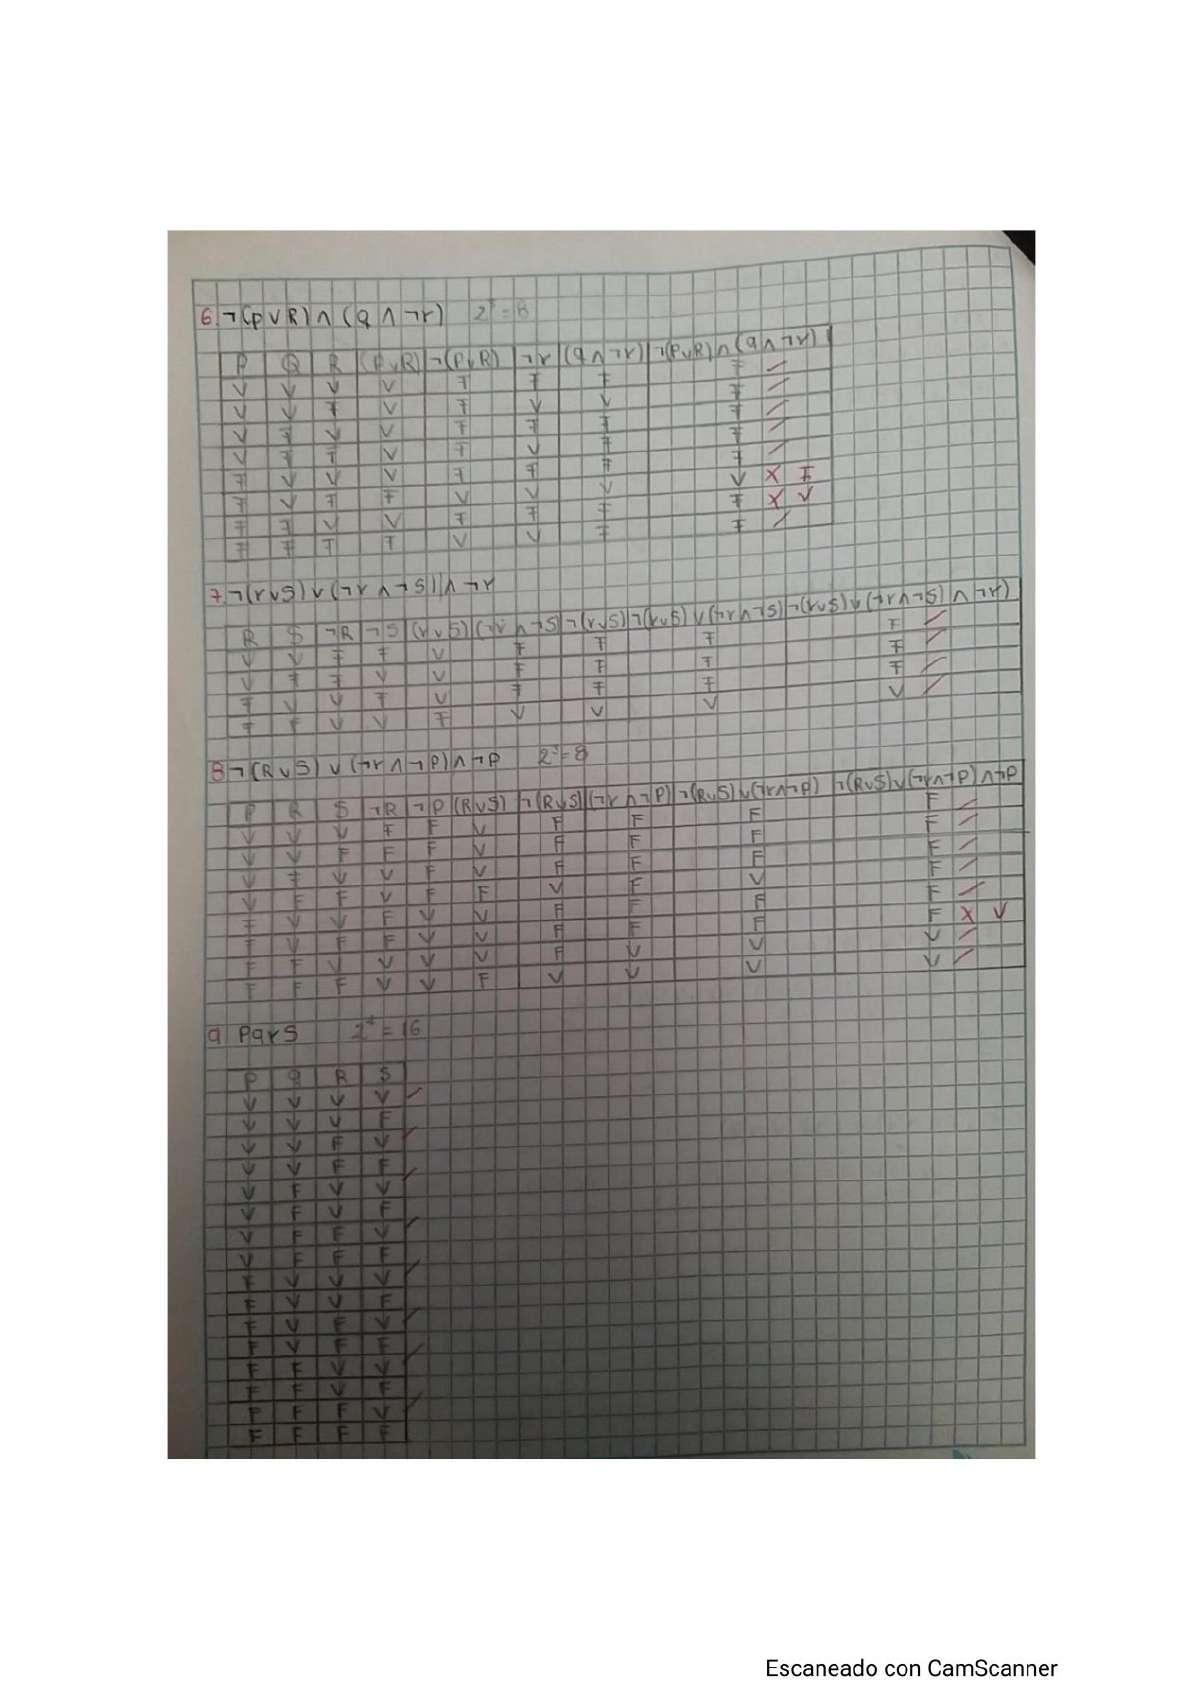 6. ¬(p∨R)∧(Q∧¬r) 2³=8
P Q R (P∨R) ¬(P∨R) ¬r (q∧¬r) ¬(P∨R)∧(q∧¬r)
V V V V F F F F
V V F V F V V F
V F V V F F F F
V F F V F V F F
F V V V F F F F
F V F F V V V V X F
F F V V F F F F X V
F F F F V V F F
7. ¬(r∨S)∨(¬r∧¬S)∧¬r
R S ¬R ¬S (r∨S) (¬r∧¬S) ¬(r∨S) ¬(r∨S)∨(¬r∧¬S) ¬(r∨S)∨(¬r∧¬S)∧¬r)
V V F F V F F F F
V F F V V F F F F
F V V F V F F F F
F F V V F V V V V
8 ¬(R∨S)∨(¬r∧¬P)∧¬P 2³=8
P R S ¬R ¬P (R∨S) ¬(R∨S) (¬r∧¬P) ¬(R∨S)∨(¬r∧¬P) ¬(R∨S)∨(¬r∧¬P)∧¬P
V V V F F V F F F F
V V F F F V F F F F
V F V V F V F F F F
V F F V F F V F V F
F V V F V V F F F F
F V F F V V F F F F X V
F F V V V V F V V V
F F F V V F V V V V
9 Pqrs 2⁴=16
P Q R S
V V V V
V V V F
V V F V
V V F F
V F V V
V F V F
V F F V
V F F F
F V V V
F V V F
F V F V
F V F F
F F V V
F F V F
F F F V
F F F F
Escaneado con CamScanner